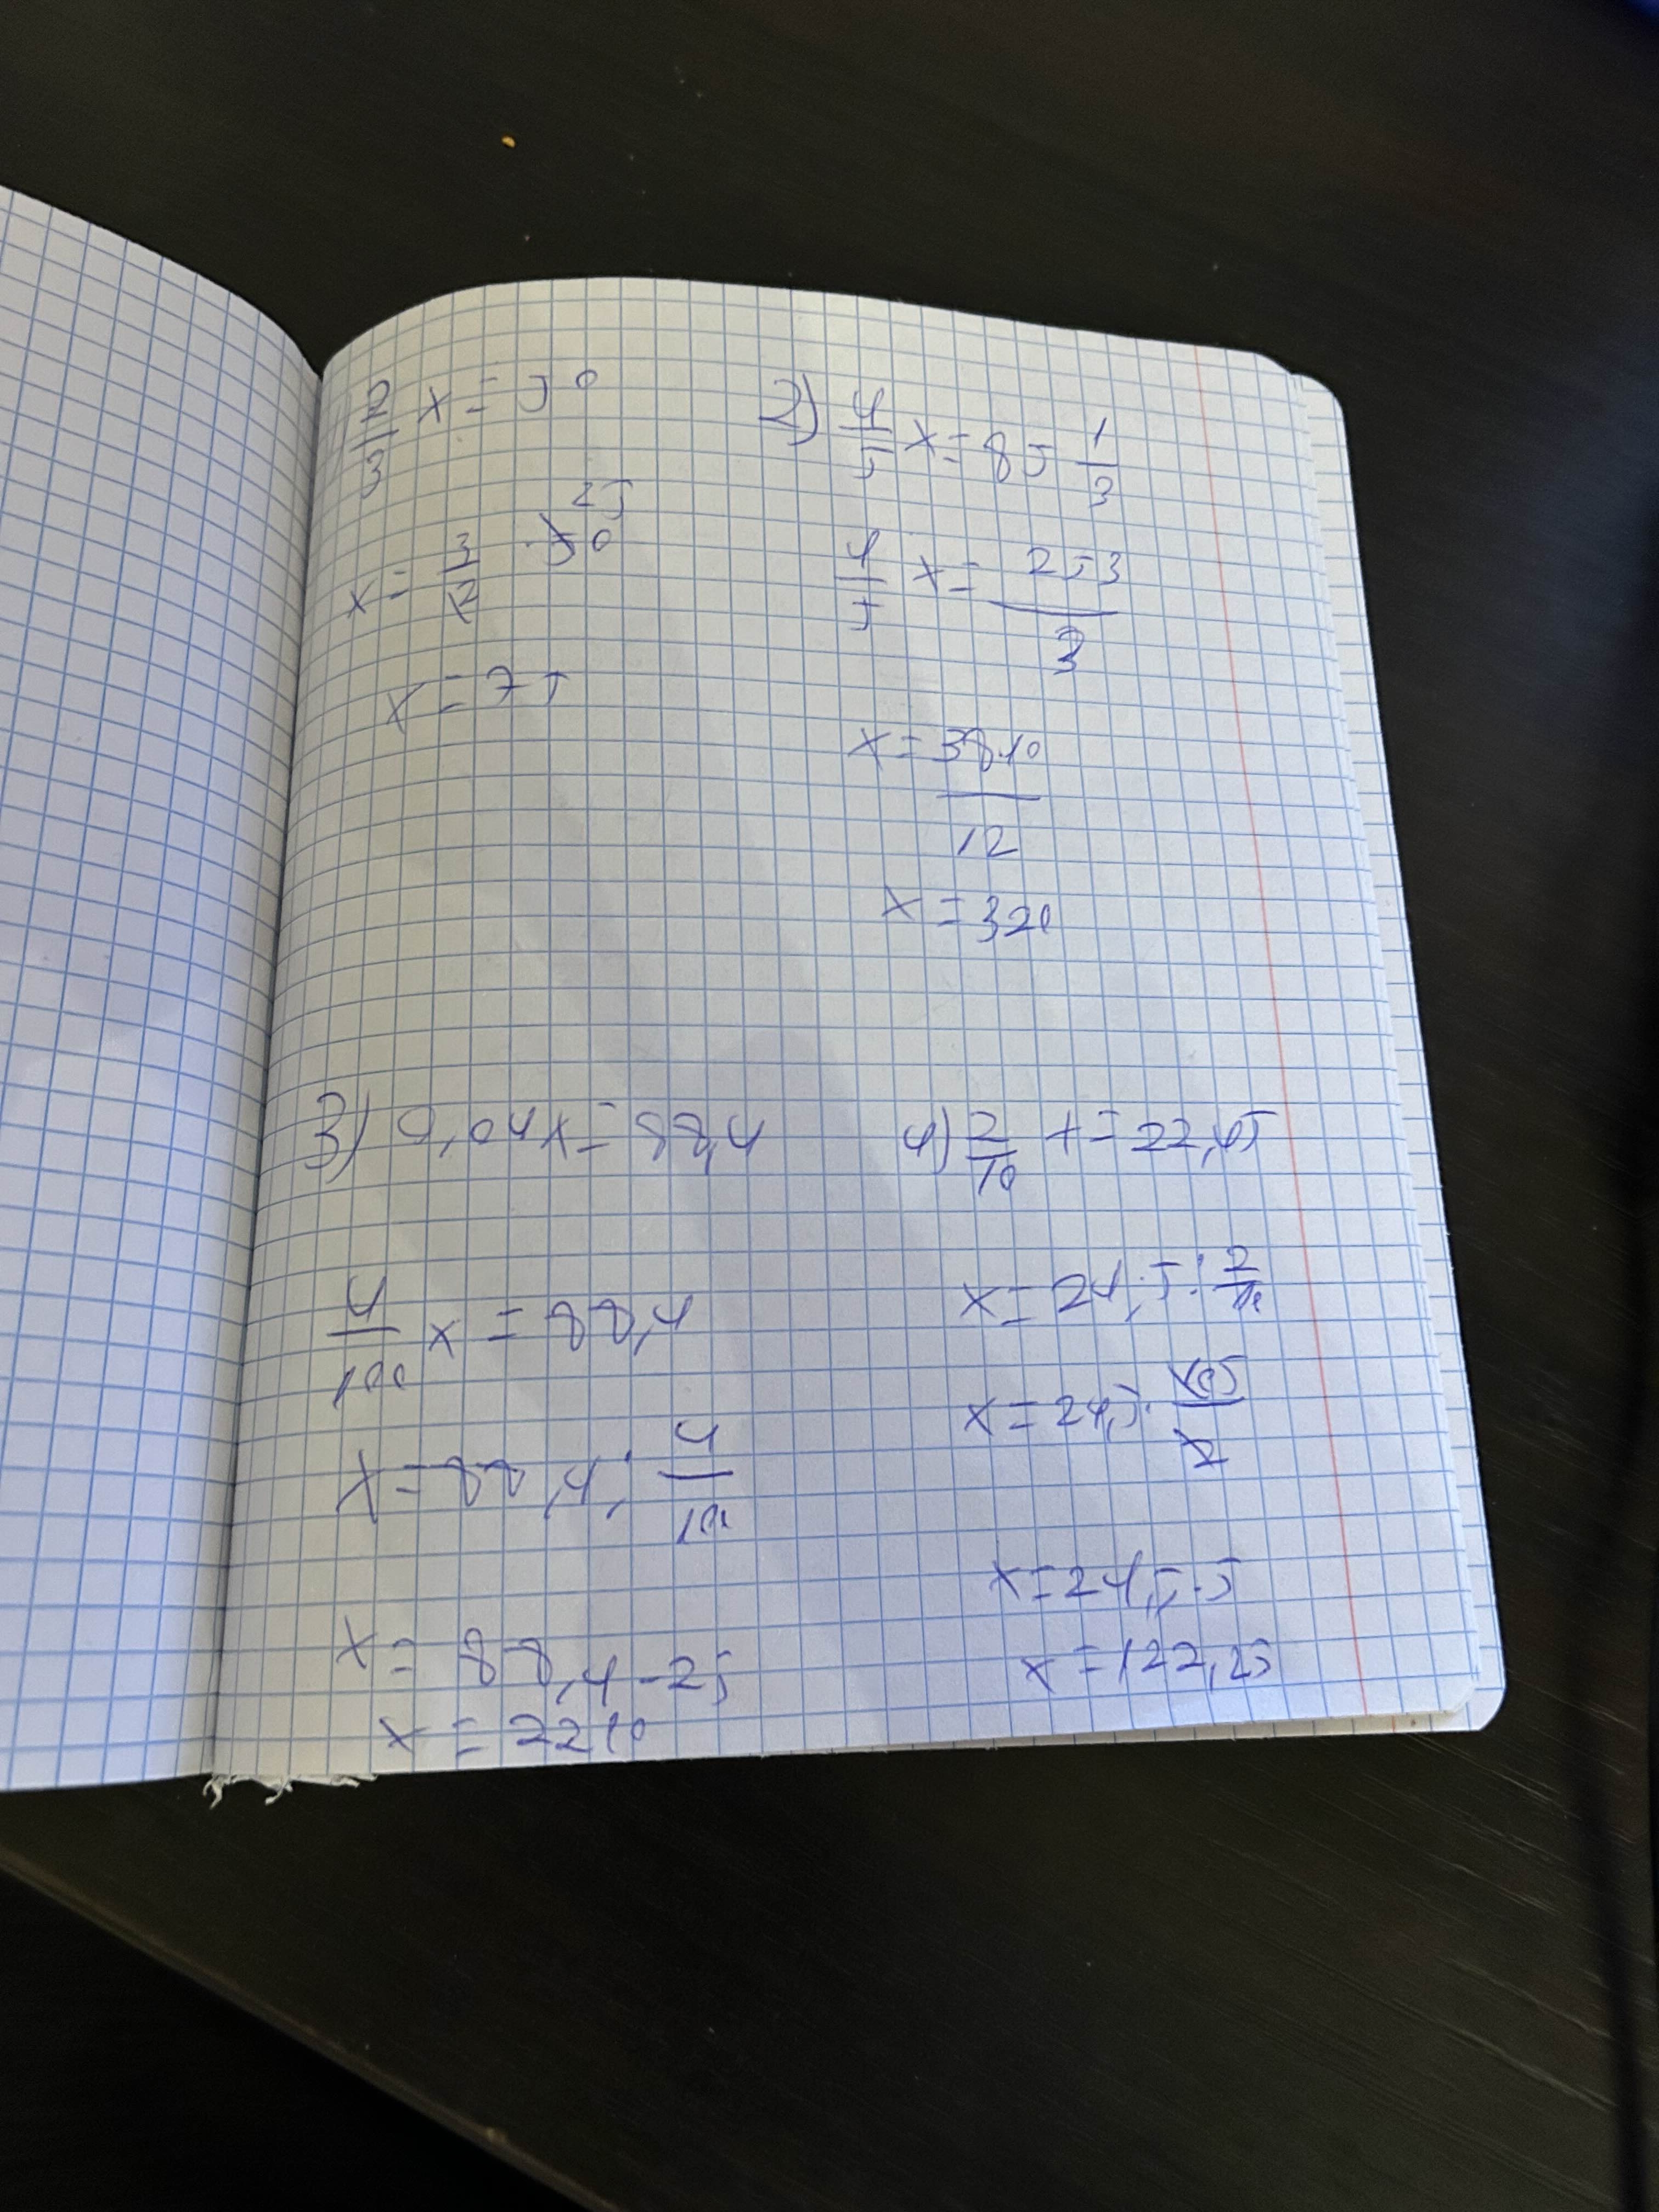 2/3 x = 50
x = 3/2 · 50 25
x = 75
2) 4/5 x = 85 1/3
4/5 x = 253/3
x = 3810/12
x = 320
3) 0,04x = 88,4
4/100 x = 88,4
x = 88,4 : 4/100
x = 88,4 - 25
x = 2210
4) 2/10 x = 22,45
x = 24,5 : 2/10
x = 24,5 · 10 5/2
x = 24,5 · 5
x = 122,25